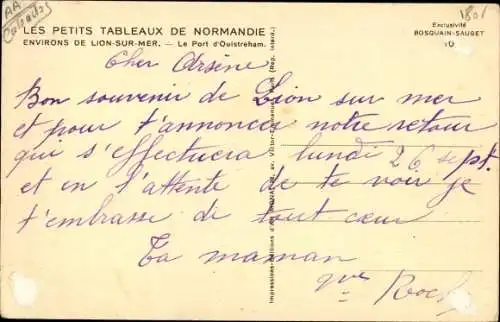 AA
Calvados
1801
LES PETITS TABLEAUX DE NORMANDIE
ENVIRONS DE LION-SUR-MER. — Le Port d'Ouistreham.
Exclusivité
BOSQUAIN-SAUGET
10
Cher Arsène
Bon souvenir de Lion sur mer
et pour t'annoncer notre retour
qui s'effectuera lundi 26 sept.
et en l'attente de te voir je
t'embrasse de tout cœur
Ta maman
gve